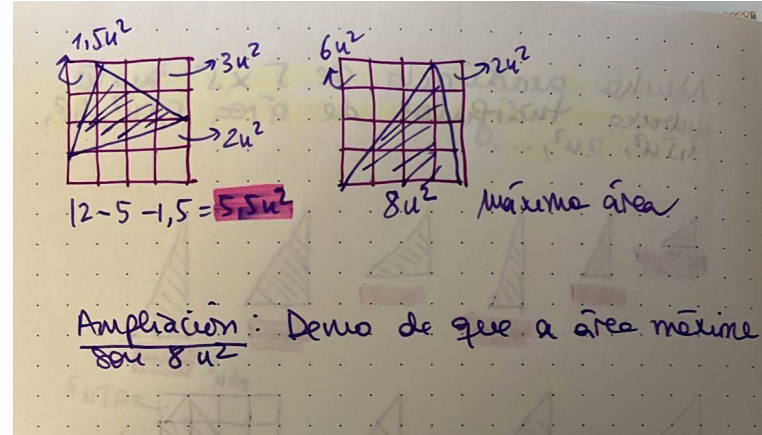 1,5u²
3u²
2u²
12-5-1,5 = 5,5u²
6u²
2u²
8u²
Máxima área
Ampliación: Demo de que a área máxima
son 8u²